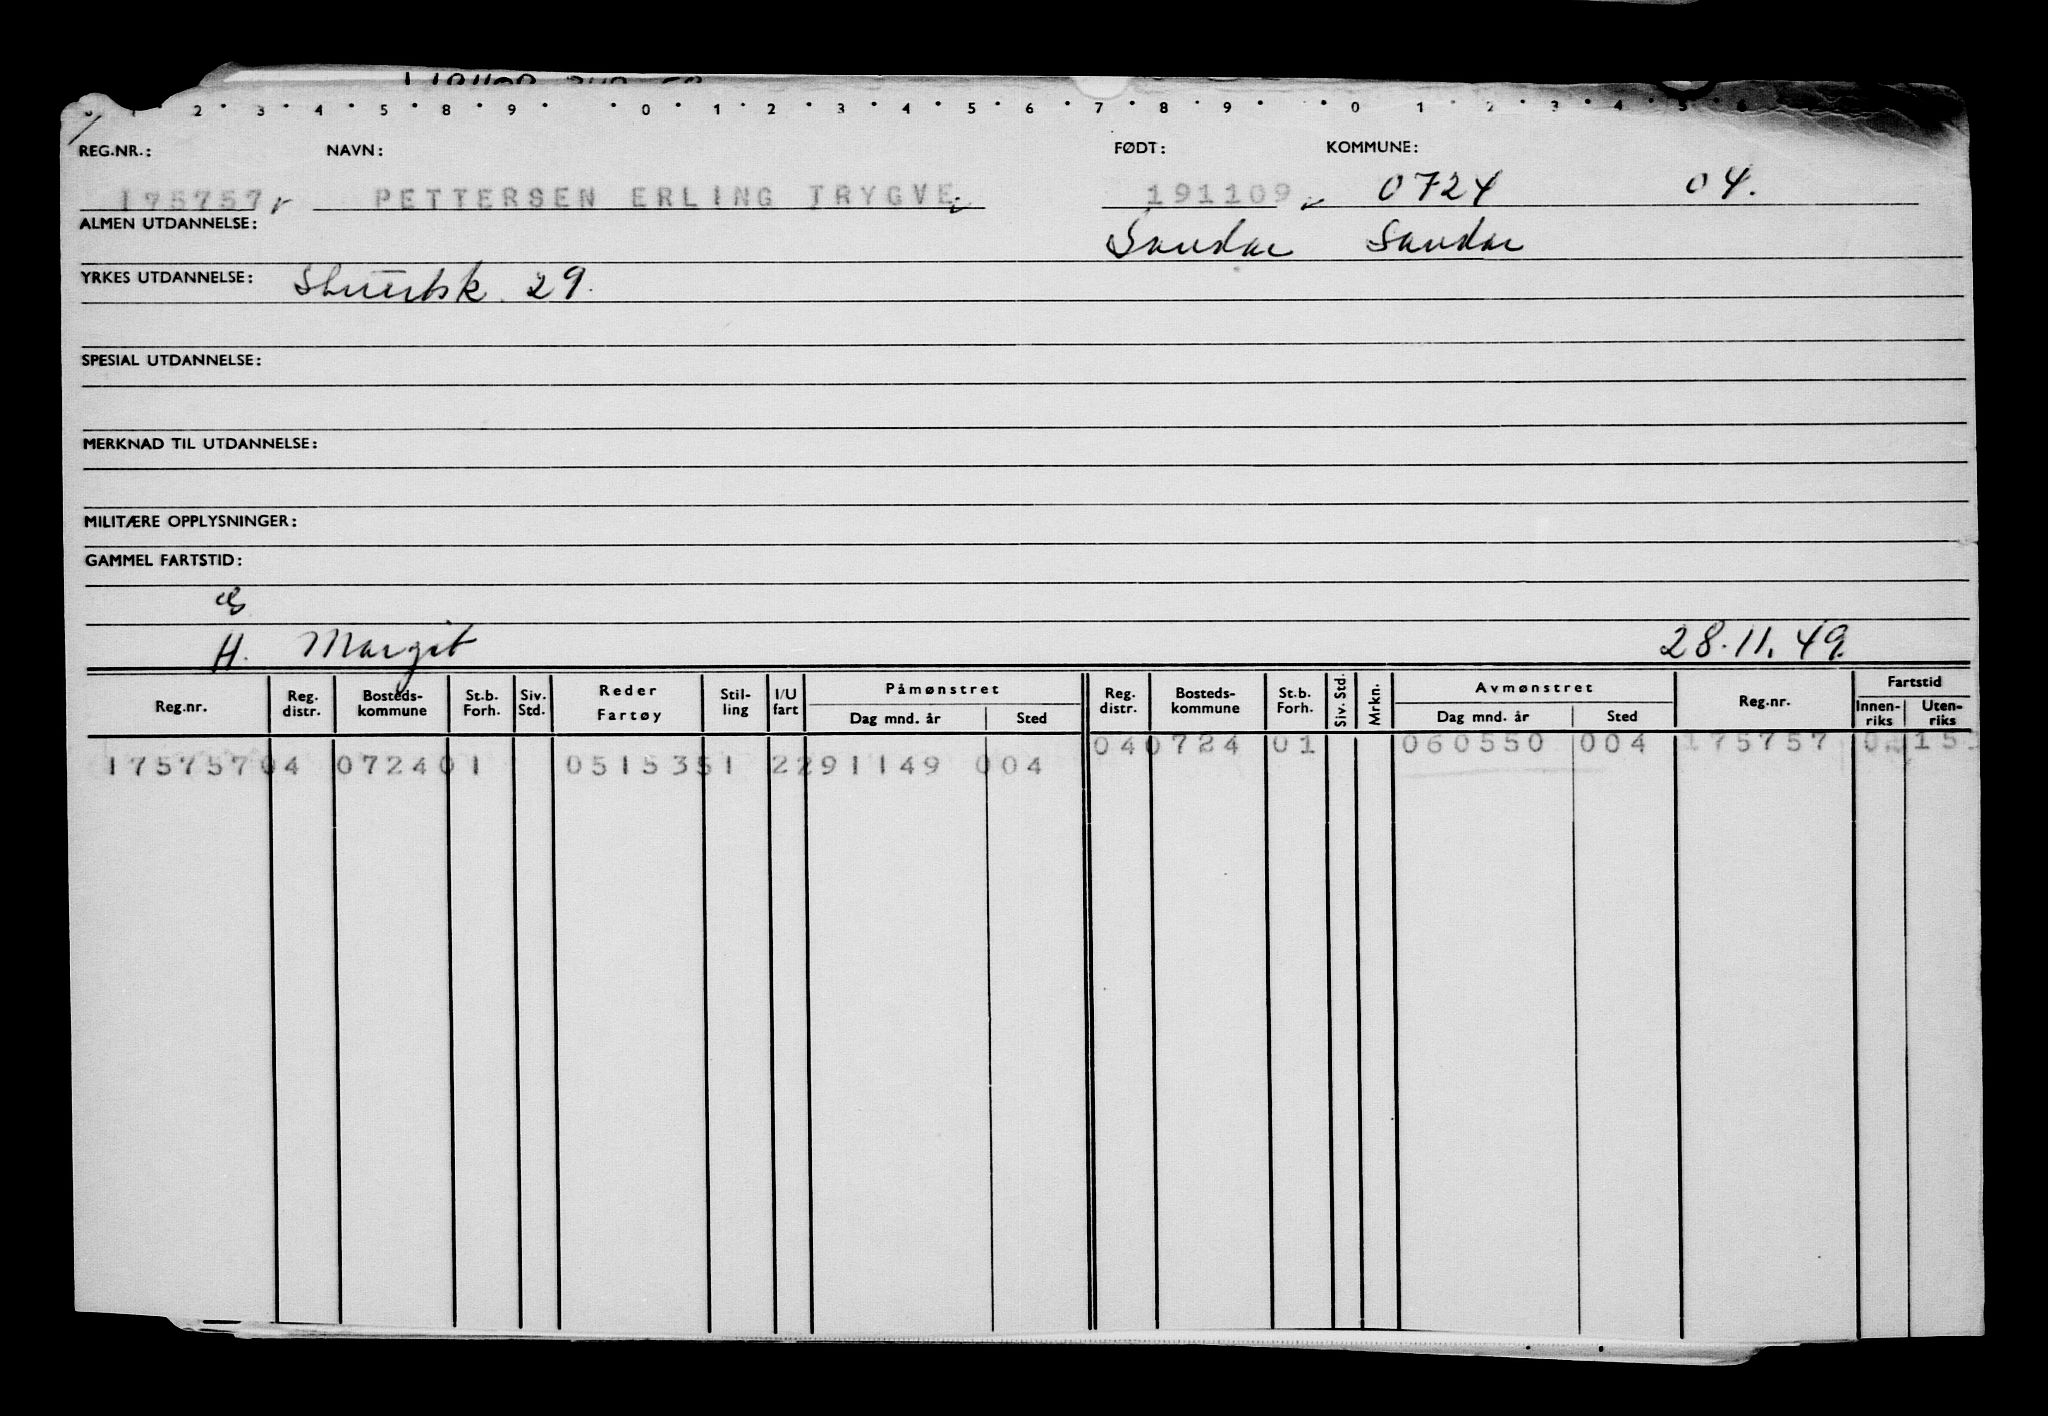 1 2 3 4 5 8 9 0 1 2 3 4 5 6 7 8 9 0 1 2 3 4 5 6
REG.NR.: NAVN: FØDT: KOMMUNE:
175757 PETTERSEN ERLING TRYGVE 191109 0724 04.
ALMEN UTDANNELSE: Sandar Sandar
YRKES UTDANNELSE: Stuertsk. 29.
SPESIAL UTDANNELSE:
MERKNAD TIL UTDANNELSE:
MILITÆRE OPPLYSNINGER:
GAMMEL FARTSTID:
H. Margit 28.11.49.
Reg.nr. Reg. distr. Bosteds-kommune St.b. Forh. Siv. Std. Reder Fartøy Stil-ling I/U fart Påmønstret Dag mnd. år Sted Reg. distr. Bosteds-kommune St.b. Forh. Siv. Std. Mrkn. Avmønstret Dag mnd. år Sted Reg.nr. Fartstid Innen-riks Uten-riks
040724 01 060550 004 175757 15
17575704 072401 0515351 2291149 004